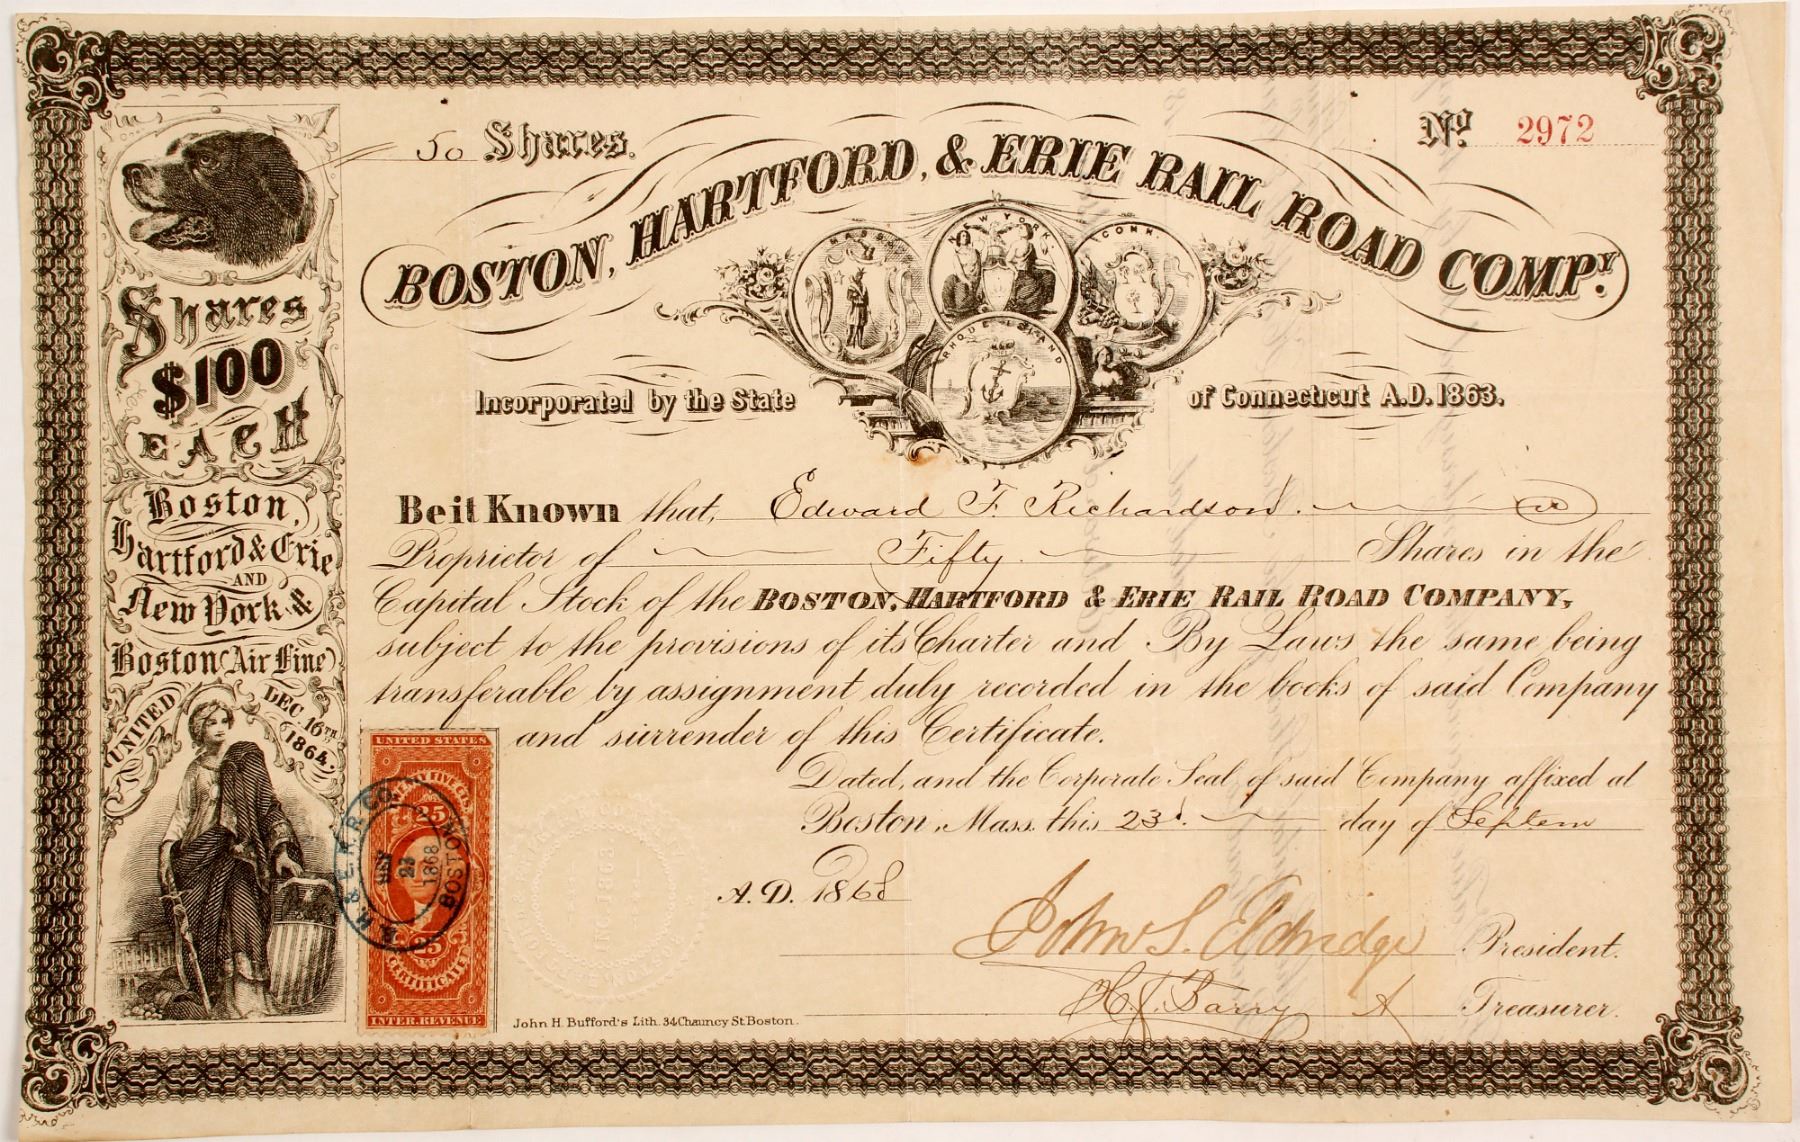 50 Shares.
No. 2972
BOSTON, HARTFORD, & ERIE RAIL ROAD COMPY.
MASS.
NEW YORK.
CONN.
RHODE ISLAND
Incorporated by the State of Connecticut A.D. 1863.
Shares
$100
EACH
Boston,
Hartford & Erie
AND
New York &
Boston (Air Line)
UNITED
DEC. 16TH
1864.
Be it Known that, Edward F. Richardson. is
Proprietor of Fifty Shares in the
Capital Stock of the BOSTON, HARTFORD & ERIE RAIL ROAD COMPANY,
subject to the provisions of its Charter and By Laws the same being
transferable by assignment duly recorded in the books of said Company
and surrender of this Certificate.
Dated, and the Corporate Seal of said Company affixed at
Boston, Mass. this 23d. day of Septem
A.D. 1868
John S. Eldridge President.
Barry Treasurer.
UNITED STATES
TWENTY FIVE CTS.
25
25
CERTIFICATE
INTER. REVENUE
B. H. & E. R. R. CO.
23
1868
BOSTON
INC. 1863.
John H. Bufford's Lith. 34 Chauncy St. Boston.